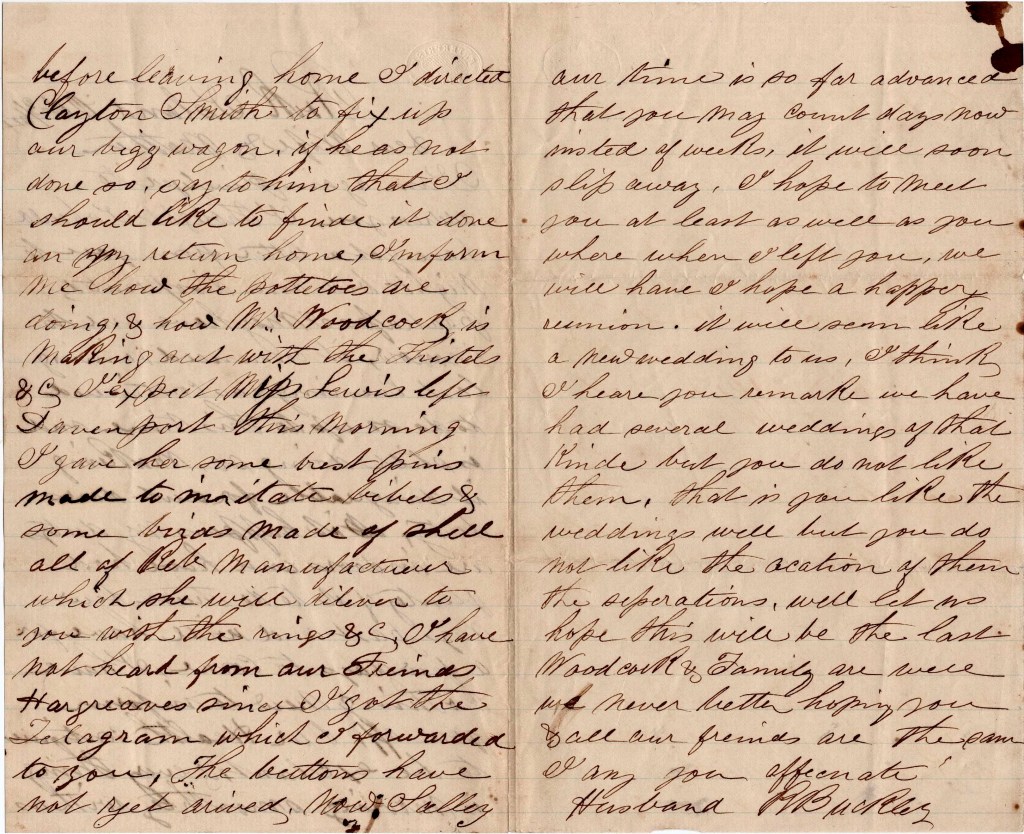 before leaving home I directed
Clayton Smith to fix up
our bigg wagon. if he as not
done so, say to him that I
should like to finde it done
on my return home, Inform
me how the pottetoes are
doing, & how Mr. Woodcock is
making out with the Thistels
&c I expect Miss Lewis left
Davenport this morning
I gave her some brest pins
made to imitate bibels &
some birds made of shell
all of Reb Manufactuer
which she will diliver to
you with the rings &c, I have
not heard from our Freinds
Hargreaves since I got the
Telagram which I forwarded
to you, The buttons have
not yet arived, Now Salley
our time is so far advanced
that you may count days now
insted of weeks, it will soon
slip away, I hope to meet
you at least as well as you
where when I left you, we
will have I hope a happey
reunion. it will seem like
a new wedding to us, I think
I heare you remarke we have
had several weddings of that
kinde but you do not like
them, that is you like the
weddings well but you do
not like the acation of them
the seperations, well let us
hope this will be the last
Woodcock & Family are well
we never better hoping you
& all our freinds are the same
I am you affecnate
Husband Buckley